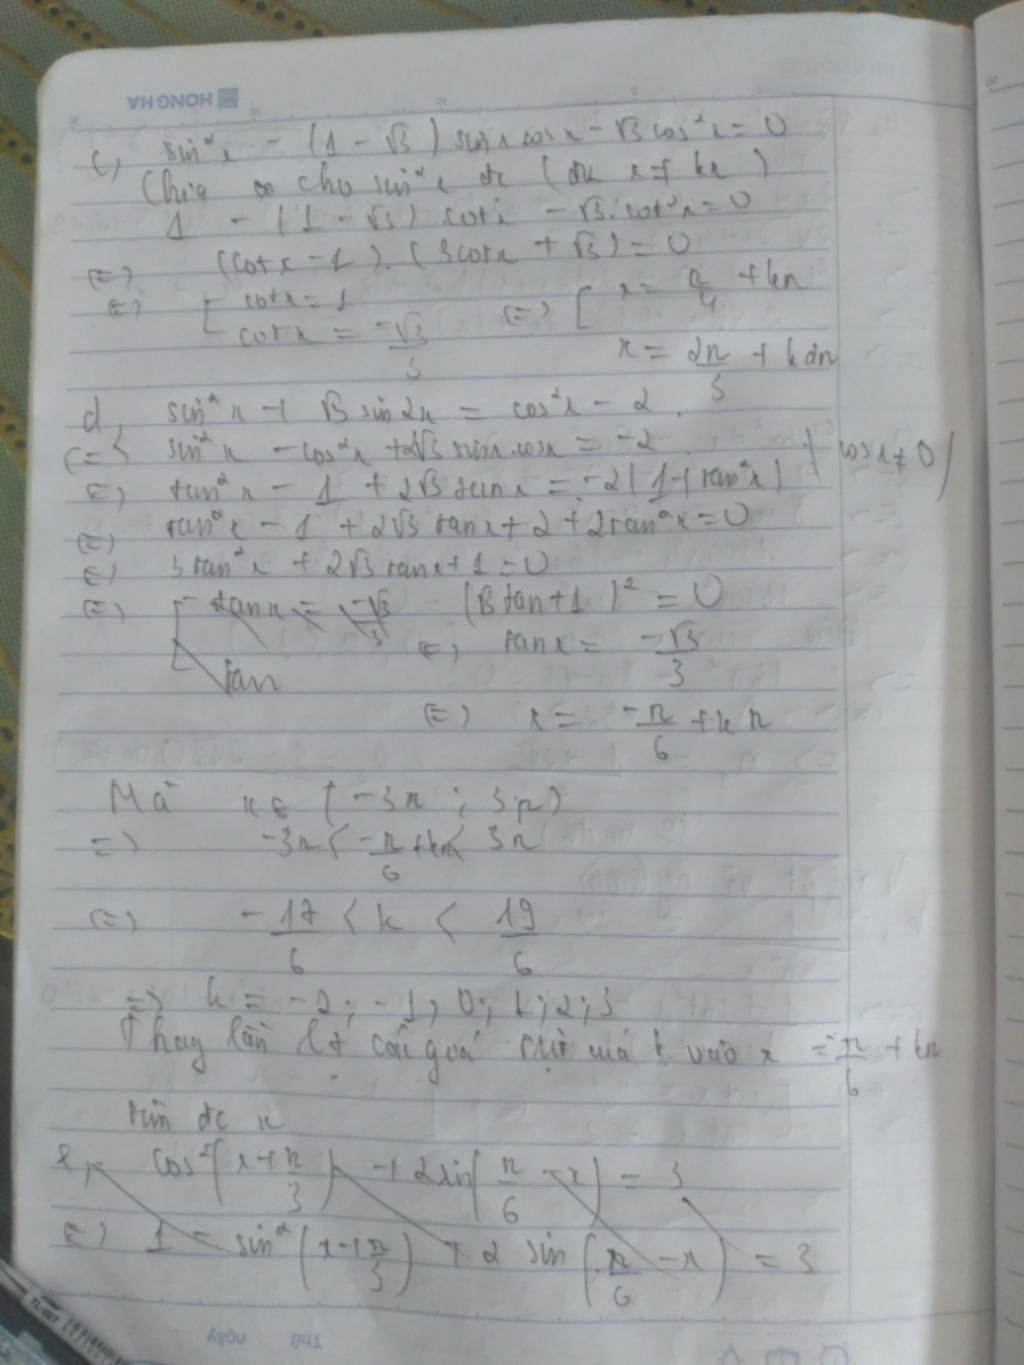 HONG HA
c, sin²x - (1 - √3) sinx cosx - √3 cos²x = 0
Chia cho sin²x đc (đk x ≠ kπ)
1 - (1 - √3) cotx - √3.cot²x = 0
(=) (cotx - 1).(3cotx + √3) = 0
(=) [ cotx = 1 (=) [ x = π/4 + kπ
cotx = -√3/3 x = 2π/3 + k2π
d, sin²x + √3 sin2x = cos²x - 2.
(=) sin²x - cos²x + 2√3 sinx.cosx = -2 (cosx ≠ 0)
(=) tan²x - 1 + 2√3 tanx = -2(1+tan²x)
(=) tan²x - 1 + 2√3 tanx + 2 + 2tan²x = 0
(=) 3tan²x + 2√3 tanx + 1 = 0
(=) [ tanx = -√3/3 (√3 tan+1)² = 0
(=) tanx = -√3/3
tan
(=) x = -π/6 + kπ
Mà x ∈ (-3π ; 3π)
=) -3π < -π/6 + kπ < 3π
(=) -17/6 < k < 19/6
=) k = -2; -1; 0; 1; 2; 3
Thay lần lt các giá k vào x = -π/6 + kπ
tìm đc x
e, cos²(x+π/3) + 2sin(π/6 - x) = 3
(=) 1 - sin²(x+π/3) + 2 sin(π/6 - x) = 3
Thứ ngày